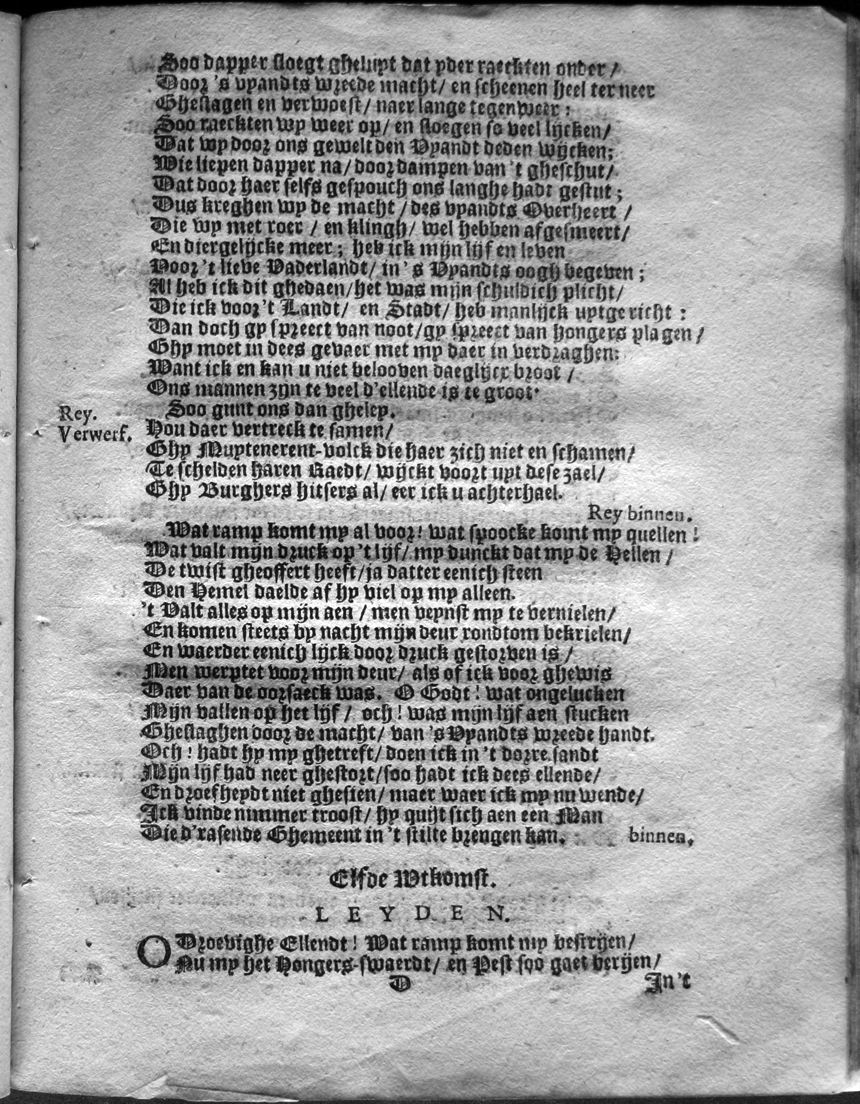 Soo dapper sloegt ghelupt dat yder raeckten onder /
Door 's vyandts wreede macht / en scheenen heel ter neer
Gheslagen en verwoest / naer lange tegenweer :
Soo raeckten wy weer op / en sloegen so veel lijcken /
Dat wy door ons gewelt den Vyandt deden wijcken;
Wie liepen dapper na / door dampen van 't gheschut /
Dat door haer selfs gespouch ons langhe hadt gestut ;
Dus kreghen wy de macht / des vyandts Overheert /
Die wy met roer / en klingh / wel hebben afgesmeert /
En diergelijcke meer ; heb ick mijn lijf en leven
Voor 't lieve Vaderlandt / in 's Vyandts oogh begeven ;
Al heb ick dit ghedaen / het was mijn schuldich plicht /
Die ick voor 't Landt / en Stadt / heb manlijck uytgericht :
Dan doch gy spreect van noot / gy spreect van hongers plagen /
Ghy moet in dees gevaer met my daer in verdraghen:
Want ick en kan u niet belooven daeglijcx broot /
Ons mannen zijn te veel d'ellende is te groot.
Rey. Soo gunt ons dan gheley.
Verwerf. Hou daer vertreck te samen /
Ghy Muytenerent-volck die haer zich niet en schamen /
Te schelden haren Raedt / wijckt voort uyt dese zael /
Ghy Burghers hitsers al / eer ick u achterhael.
Rey binnen.
Wat ramp komt my al voor! wat spoocke komt my quellen !
Wat valt mijn druck op 't lijf / my dunckt dat my de Hellen /
De twist gheoffert heeft / ja datter eenich steen
Den Hemel daelde af hy viel op my alleen.
't Valt alles op mijn aen / men veynst my te vernielen /
En komen steets by nacht mijn deur rondtom bekrielen /
En waerder eenich lijck door druck gestorven is /
Men werptet voor mijn deur / als of ick voor ghewis
Daer van de oorsaeck was. O Godt ! wat ongelucken
Mijn vallen op het lijf / och ! was mijn lijf aen stucken
Gheslaghen door de macht / van 's Vyandts wreede handt.
Och ! hadt hy my ghetreft / doen ick in 't dorre sandt
Mijn lijf had neer ghestort / soo hadt ick dees ellende /
En droefheydt niet ghesien / maer waer ick my nu wende /
Ick vinde nimmer troost / hy quijt sich aen een Man
Die d'rasende Ghemeent in 't stilte brengen kan. binnen.
Elfde Wtkomst.
LEYDEN.
O Droevighe Ellendt ! Wat ramp komt my bestrijen /
Nu my het Hongers-swaerdt / en Pest soo gaet berijen /
D In't